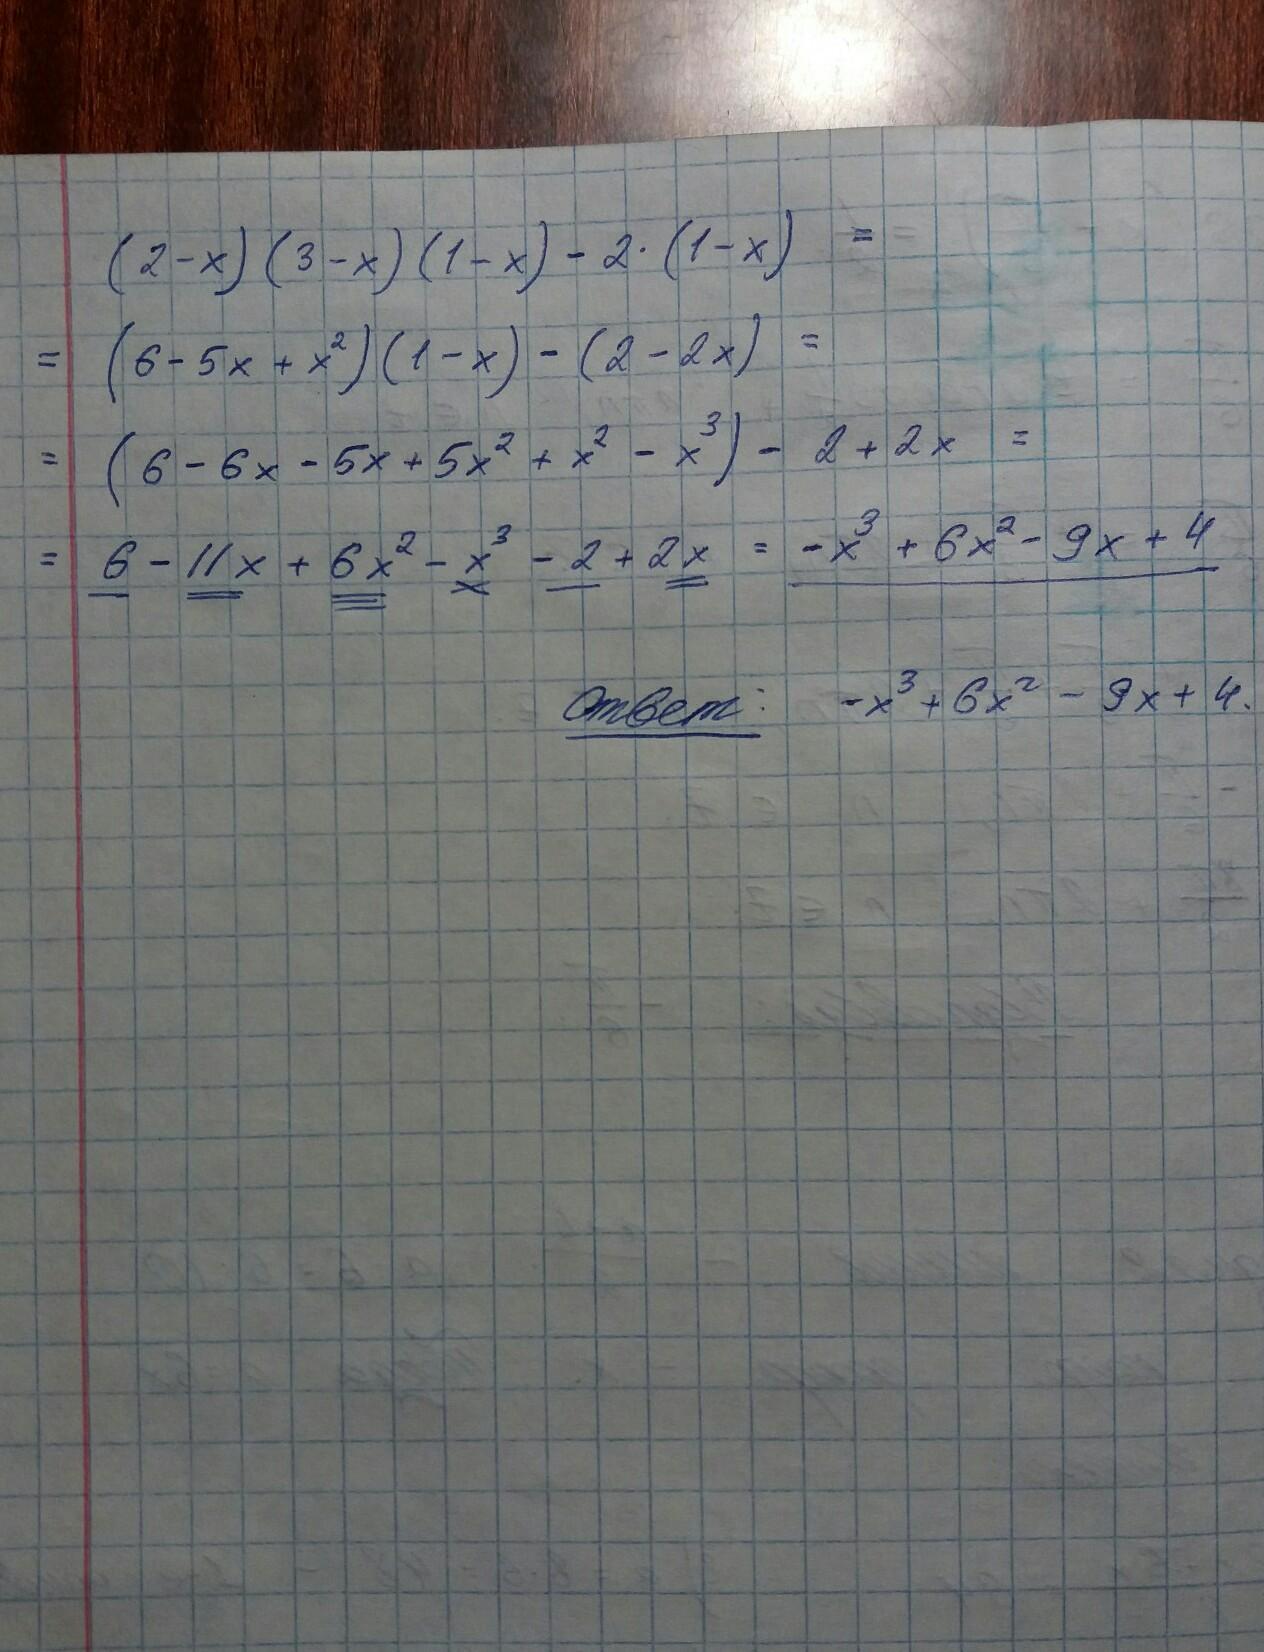 (2-x)(3-x)(1-x)-2·(1-x) =
= (6-5x+x²)(1-x)-(2-2x) =
= (6-6x-5x+5x²+x²-x³)-2+2x =
= 6-11x+6x²-x³-2+2x = -x³+6x²-9x+4
Ответ: -x³+6x²-9x+4.